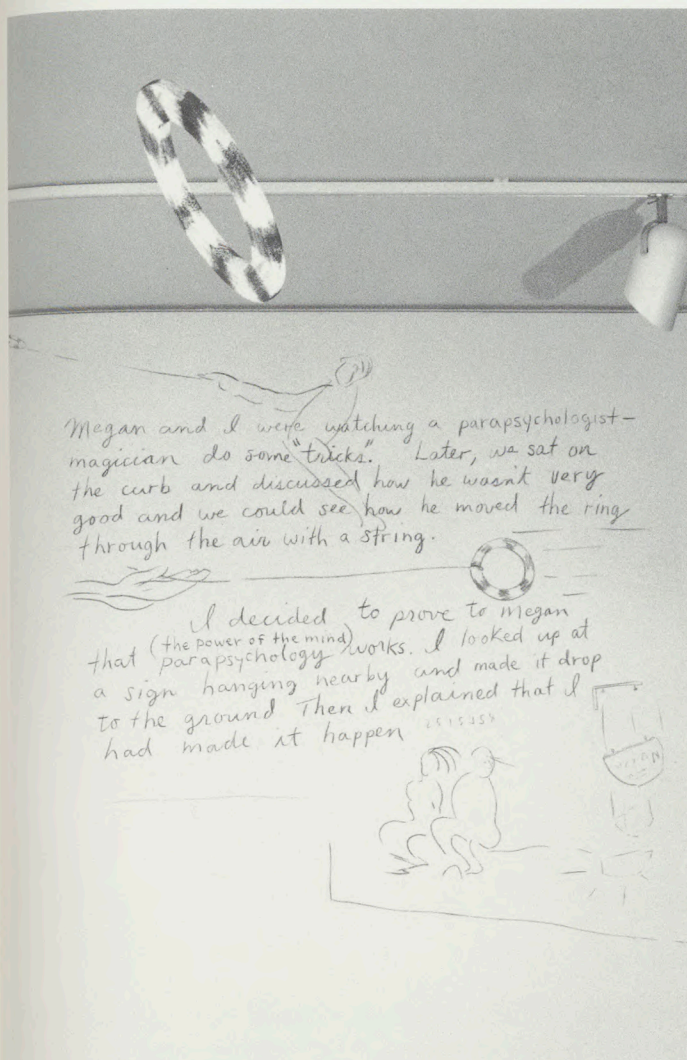 Megan and I were watching a parapsychologist-
magician do some "tricks". Later, we sat on
the curb and discussed how he wasn't very
good and we could see how he moved the ring
through the air with a string.
I decided to prove to Megan
that (the power of the mind)
parapsychology works. I looked up at
a sign hanging nearby and made it drop
to the ground Then I explained that I
had made it happen